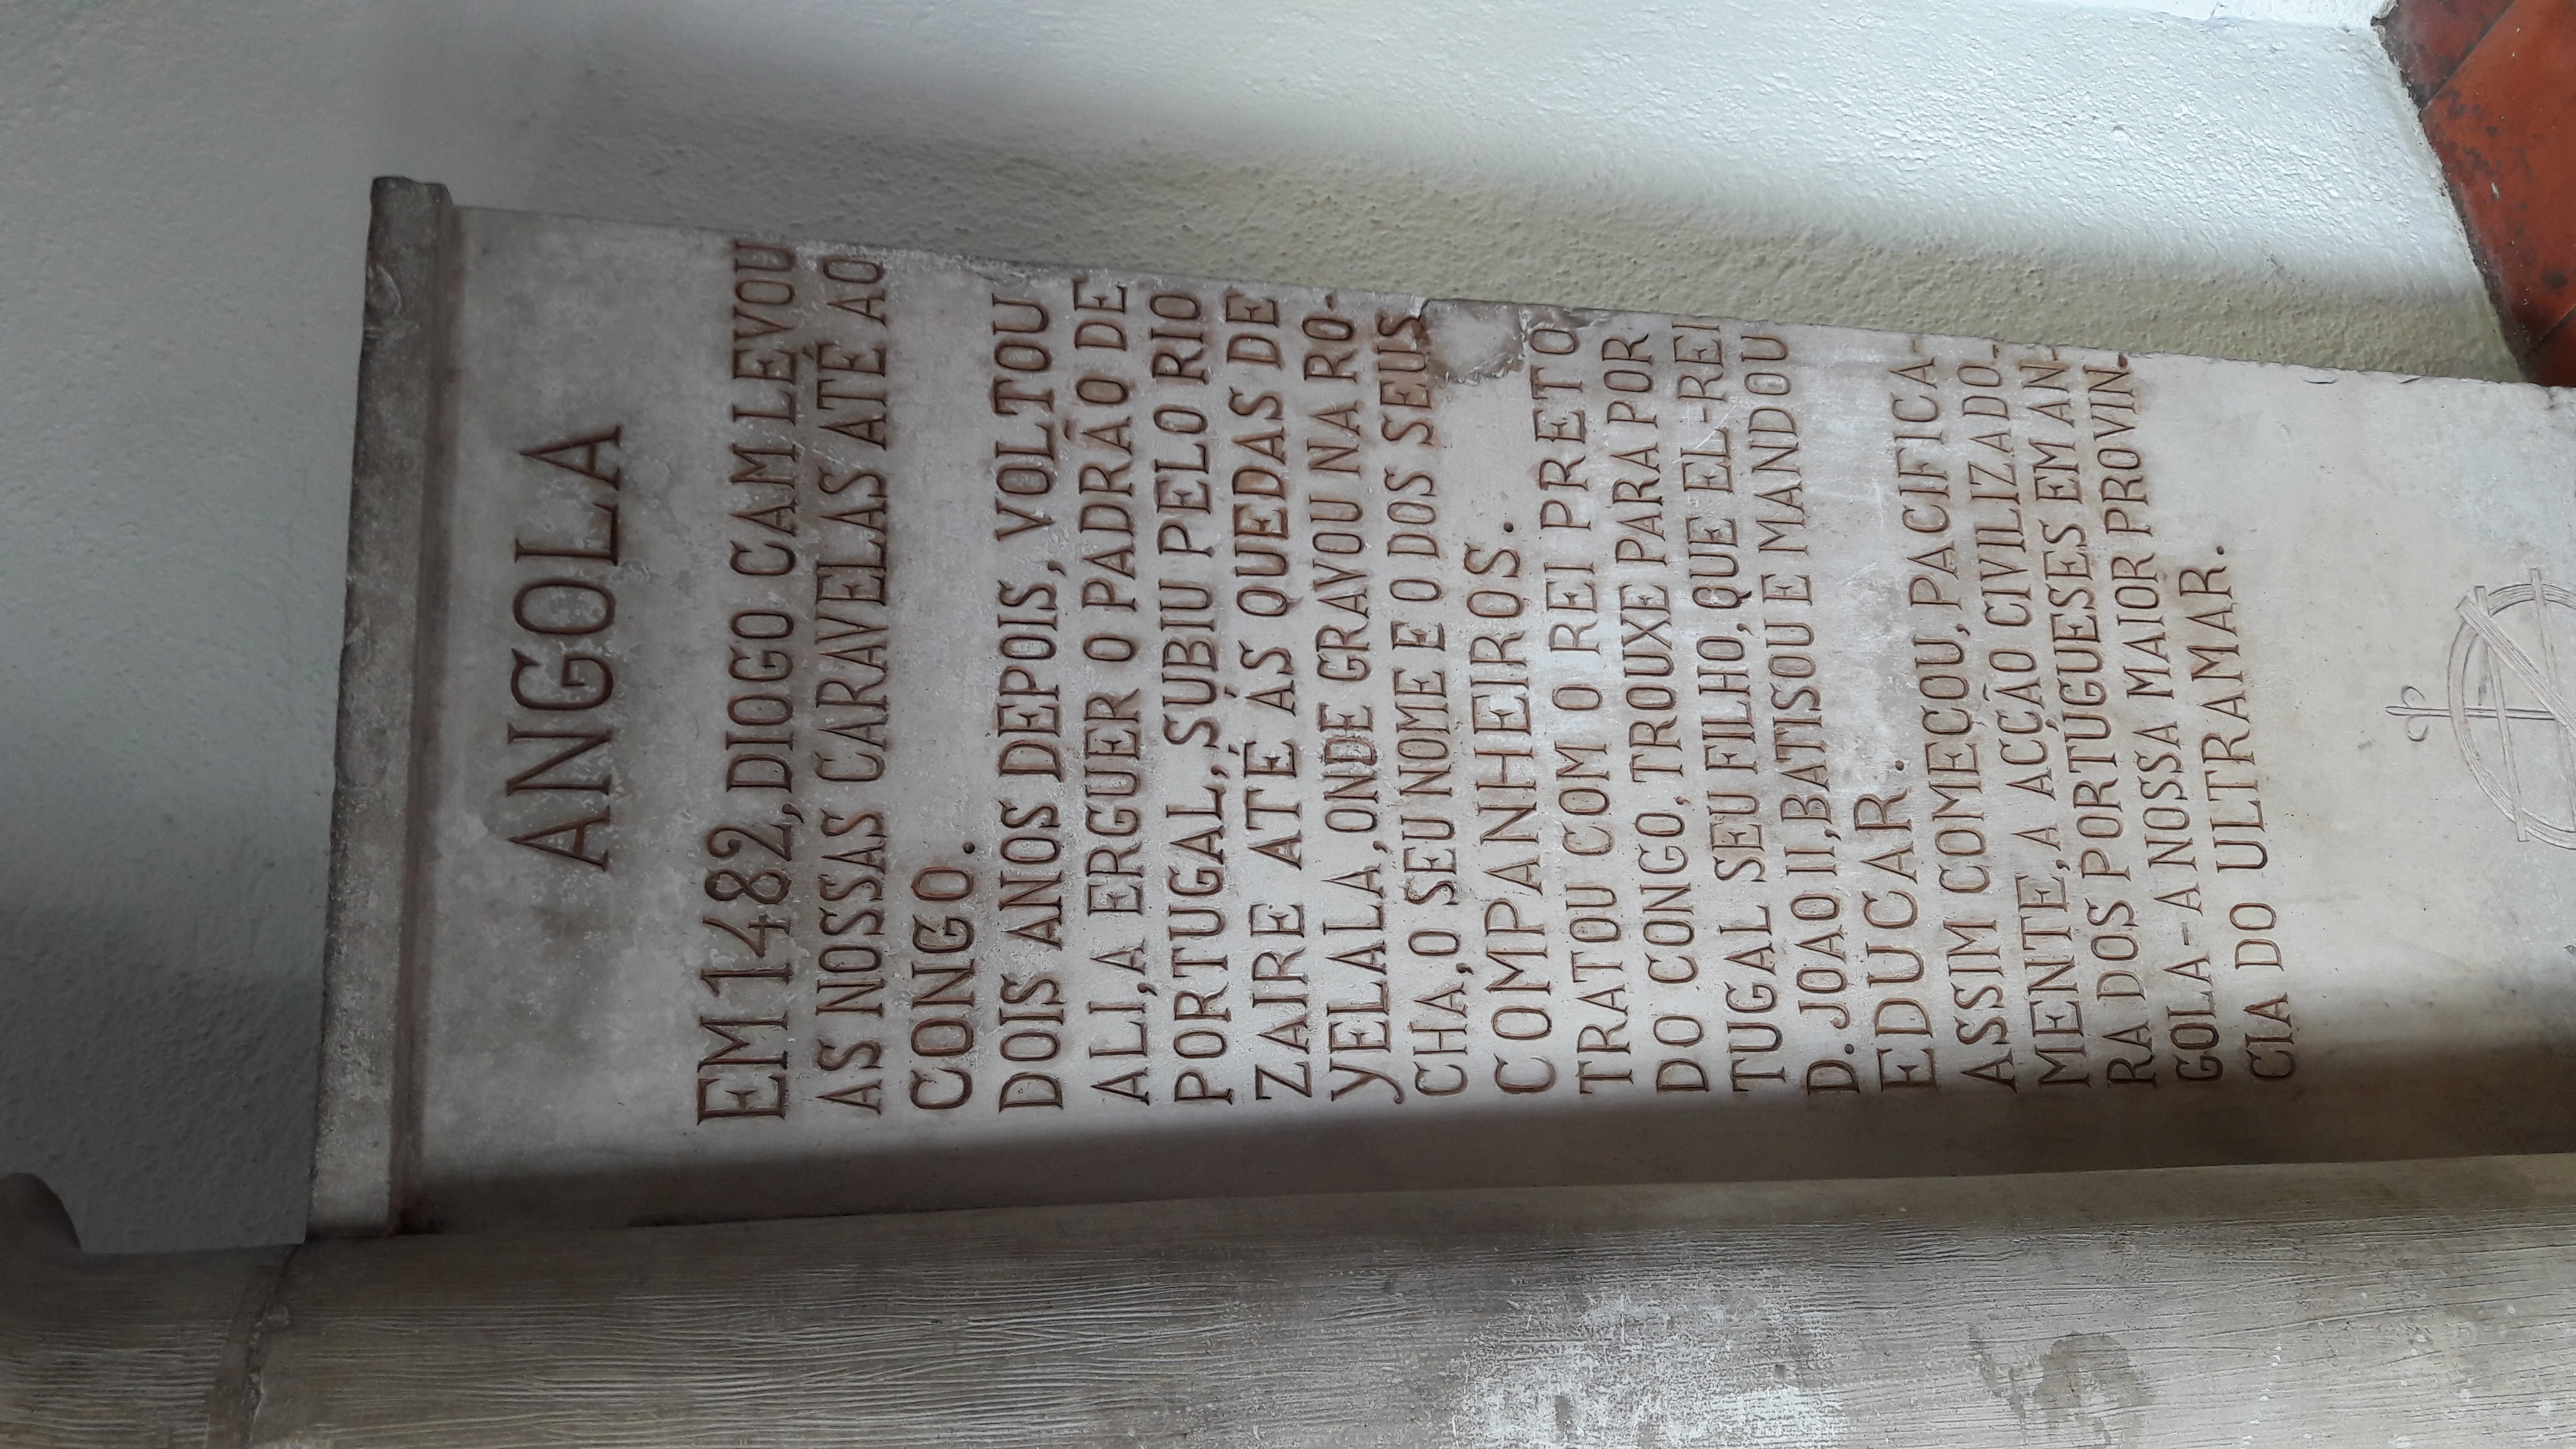 ANGOLA
EM 1482, DIOGO CAM LEVOU
AS NOSSAS CARAVELAS ATÉ AO
CONGO.
DOIS ANOS DEPOIS, VOLTOU
ALI, A ERGUER O PADRÃO DE
PORTUGAL, SUBIU PELO RIO
ZAIRE ATÉ ÁS QUEDAS DE
YELALA, ONDE GRAVOU NA RO-
CHA, O SEU NOME E O DOS SEUS
COMPANHEIROS.
TRATOU COM O REI PRETO
DO CONGO, TROUXE PARA POR
TUGAL SEU FILHO, QUE EL-REI
D. JOAO II, BATISOU E MANDOU
EDUCAR.
ASSIM COMEÇOU, PACIFICA-
MENTE, A ACÇÃO CIVILIZADO-
RA DOS PORTUGUESES EM AN-
GOLA - A NOSSA MAIOR PROVIN-
CIA DO ULTRAMAR.